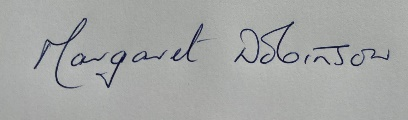 Margaret Robinson